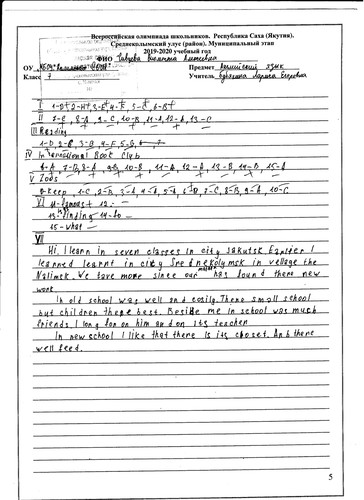 Всероссийская олимпиада школьников. Республика Саха (Якутия).
Среднеколымский улус (район). Муниципальный этап
2019-2020 учебный год
ФИО
ОУ Предмет Английский язык
Класс 7 Учитель
I 1-D 2-H 3-E 4-F 5-C 6-B
II 7-C, 8-A, 9-C, 10-B, 11-A, 12-A, 13-C
III Reading
1-D, 2-C, 3-B, 4-F, 5-G, 6-
IV International Book Club
6-A, 7-D, 8-A, 9-B, 10-B, 11-A, 12-A, 13-B, 14-B, 15-A
V Zoos
0-keep, 1-C, 2-B, 3-A, 4-A, 5-A, 6-D, 7-C, 8-B, 9-A, 10-C
VI 11-famous 12-
13-finding 14-to
15-what
VII
Hi, I learn in seven classes in city Jakutsk Earlier I
learned learnt in city Srednekolymsk in vellage the
Nalimsk. We tove more since our has found there new
work.
In old school was well and cosily. There small school
but children there best. Beside me in school was much
friends. I long for on him and on its teacher
In new school I like that there is its closet. And there
well feed.
5